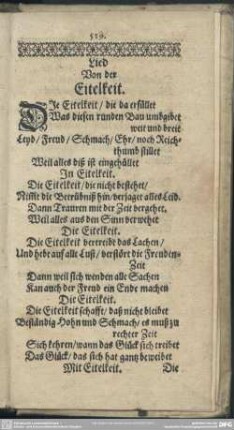 519.
Lied
Von der
Eitelkeit.
DIe Eitelkeit / die da erfüllet
Was diesen runden Bau umbgibet
weit und breit
Leyd / Freud / Schmach / Ehr / noch Reich-
thumb stillet
Weil alles diß ist eingehüllet
In Eitelkeit.
Die Eitelkeit / die nicht bestehet /
Nimt die Betrübniß hin / verjaget alles Leid.
Dann Trauren mit der Zeit vergehet,
Weil alles aus den Sinn verwehet
Die Eitelkeit.
Die Eitelkeit vertreibt das Lachen /
Und hebt auf alle Lust / verstört die Freuden-
Zeit
Dann weil sich wenden alle Sachen
Kan auch der Freud ein Ende machen
Die Eitelkeit.
Die Eitelkeit schafft / daß nicht bleibet
Beständig Hohn und Schmach / es muß zu
rechter Zeit
Sich kehren / wann das Glück sich treibet
Das Glück / das sich hat gantz beweibet
Mit Eitelkeit. Die